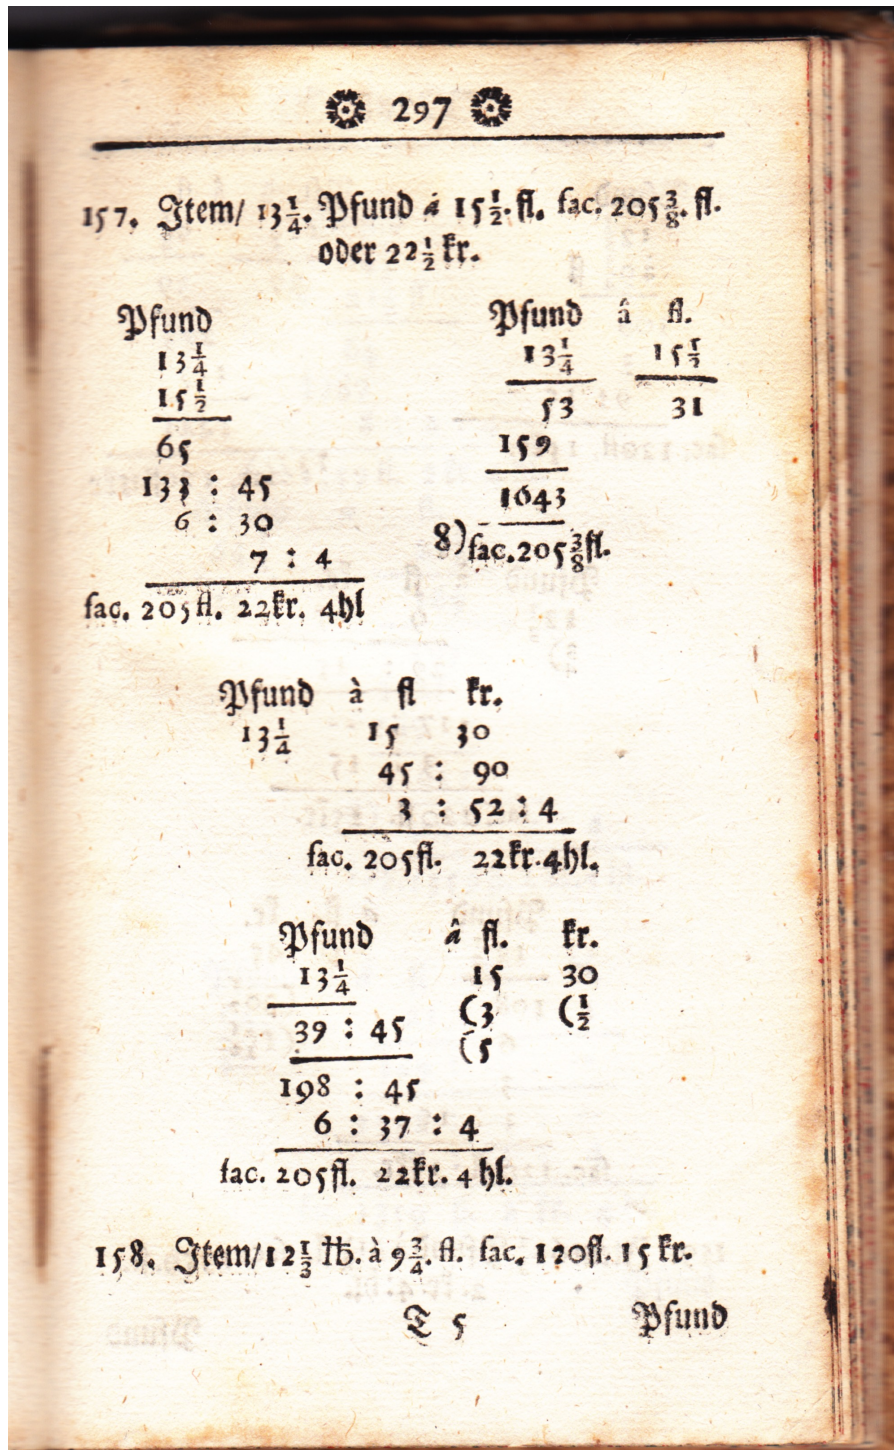 297
157. Item/ 13 1/4. Pfund â 15 1/2. fl. fac. 205 3/8. fl.
oder 22 1/2 kr.
Pfund
13 1/4
15 1/2
65
133 : 45
6 : 30
7 : 4
fac. 205 fl. 22kr. 4hl
Pfund â fl.
13 1/4 15 1/2
53 31
159
1643
8) fac. 205 3/8 fl.
Pfund à fl kr.
13 1/4 15 30
45 : 90
3 : 52 : 4
fac. 205fl. 22kr. 4hl.
Pfund â fl. kr.
13 1/4 15 30
(3 (1/2
39 : 45
(5
198 : 45
6 : 37 : 4
fac. 205fl. 22kr. 4hl.
158. Item/ 12 1/3 ℔. à 9 3/4. fl. fac. 120fl. 15 kr.
T 5 Pfund